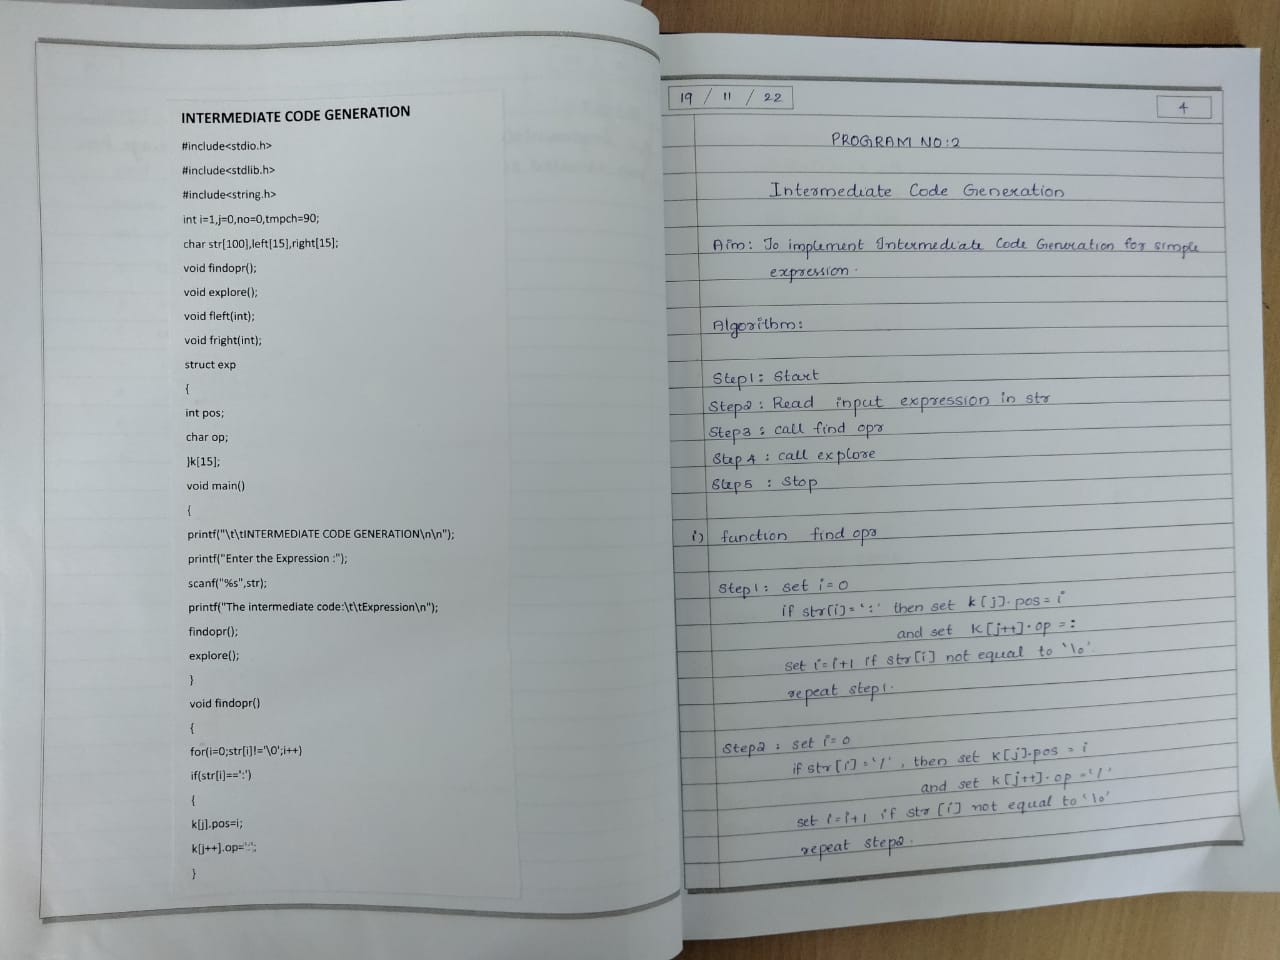 INTERMEDIATE CODE GENERATION
#include<stdio.h>
#include<stdlib.h>
#include<string.h>
int i=1,j=0,no=0,tmpch=90;
char str[100],left[15],right[15];
void findopr();
void explore();
void fleft(int);
void fright(int);
struct exp
{
int pos;
char op;
}k[15];
void main()
{
printf("\t\tINTERMEDIATE CODE GENERATION\n\n");
printf("Enter the Expression :");
scanf("%s",str);
printf("The intermediate code:\t\tExpression\n");
findopr();
explore();
}
void findopr()
{
for(i=0;str[i]!='\0';i++)
if(str[i]==':')
{
k[j].pos=i;
k[j++].op=':';
}
19 / 11 / 22
4
PROGRAM NO:2
Intermediate Code Generation
Aim: To implement Intermediate Code Generation for simple
expression.
Algorithm:
Step1: Start
Step2: Read input expression in str
Step3: call find opr
Step 4: call explore
Step5 : Stop
i) function find opr
Step1: set i=0
if str[i]=':' then set k[j].pos=i
and set k[j++].op=:
set i=i+1 if str[i] not equal to '\0'
repeat step1.
Step2: set i=0
if str[i]='/', then set k[j].pos = i
and set k[j++].op ='/'
set i=i+1 if str[i] not equal to '\0'
repeat step2.